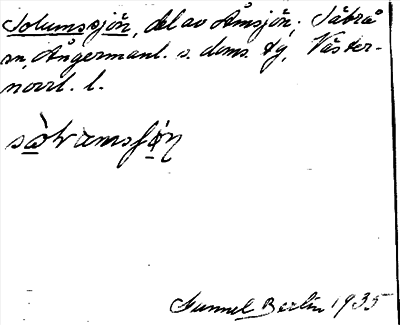 Solumssjön, del av Åmsjön; Säbrå
sn, Ångermanl. s. doms. tg, Väster-
norrl. l.
Gunnel Berlin 1935